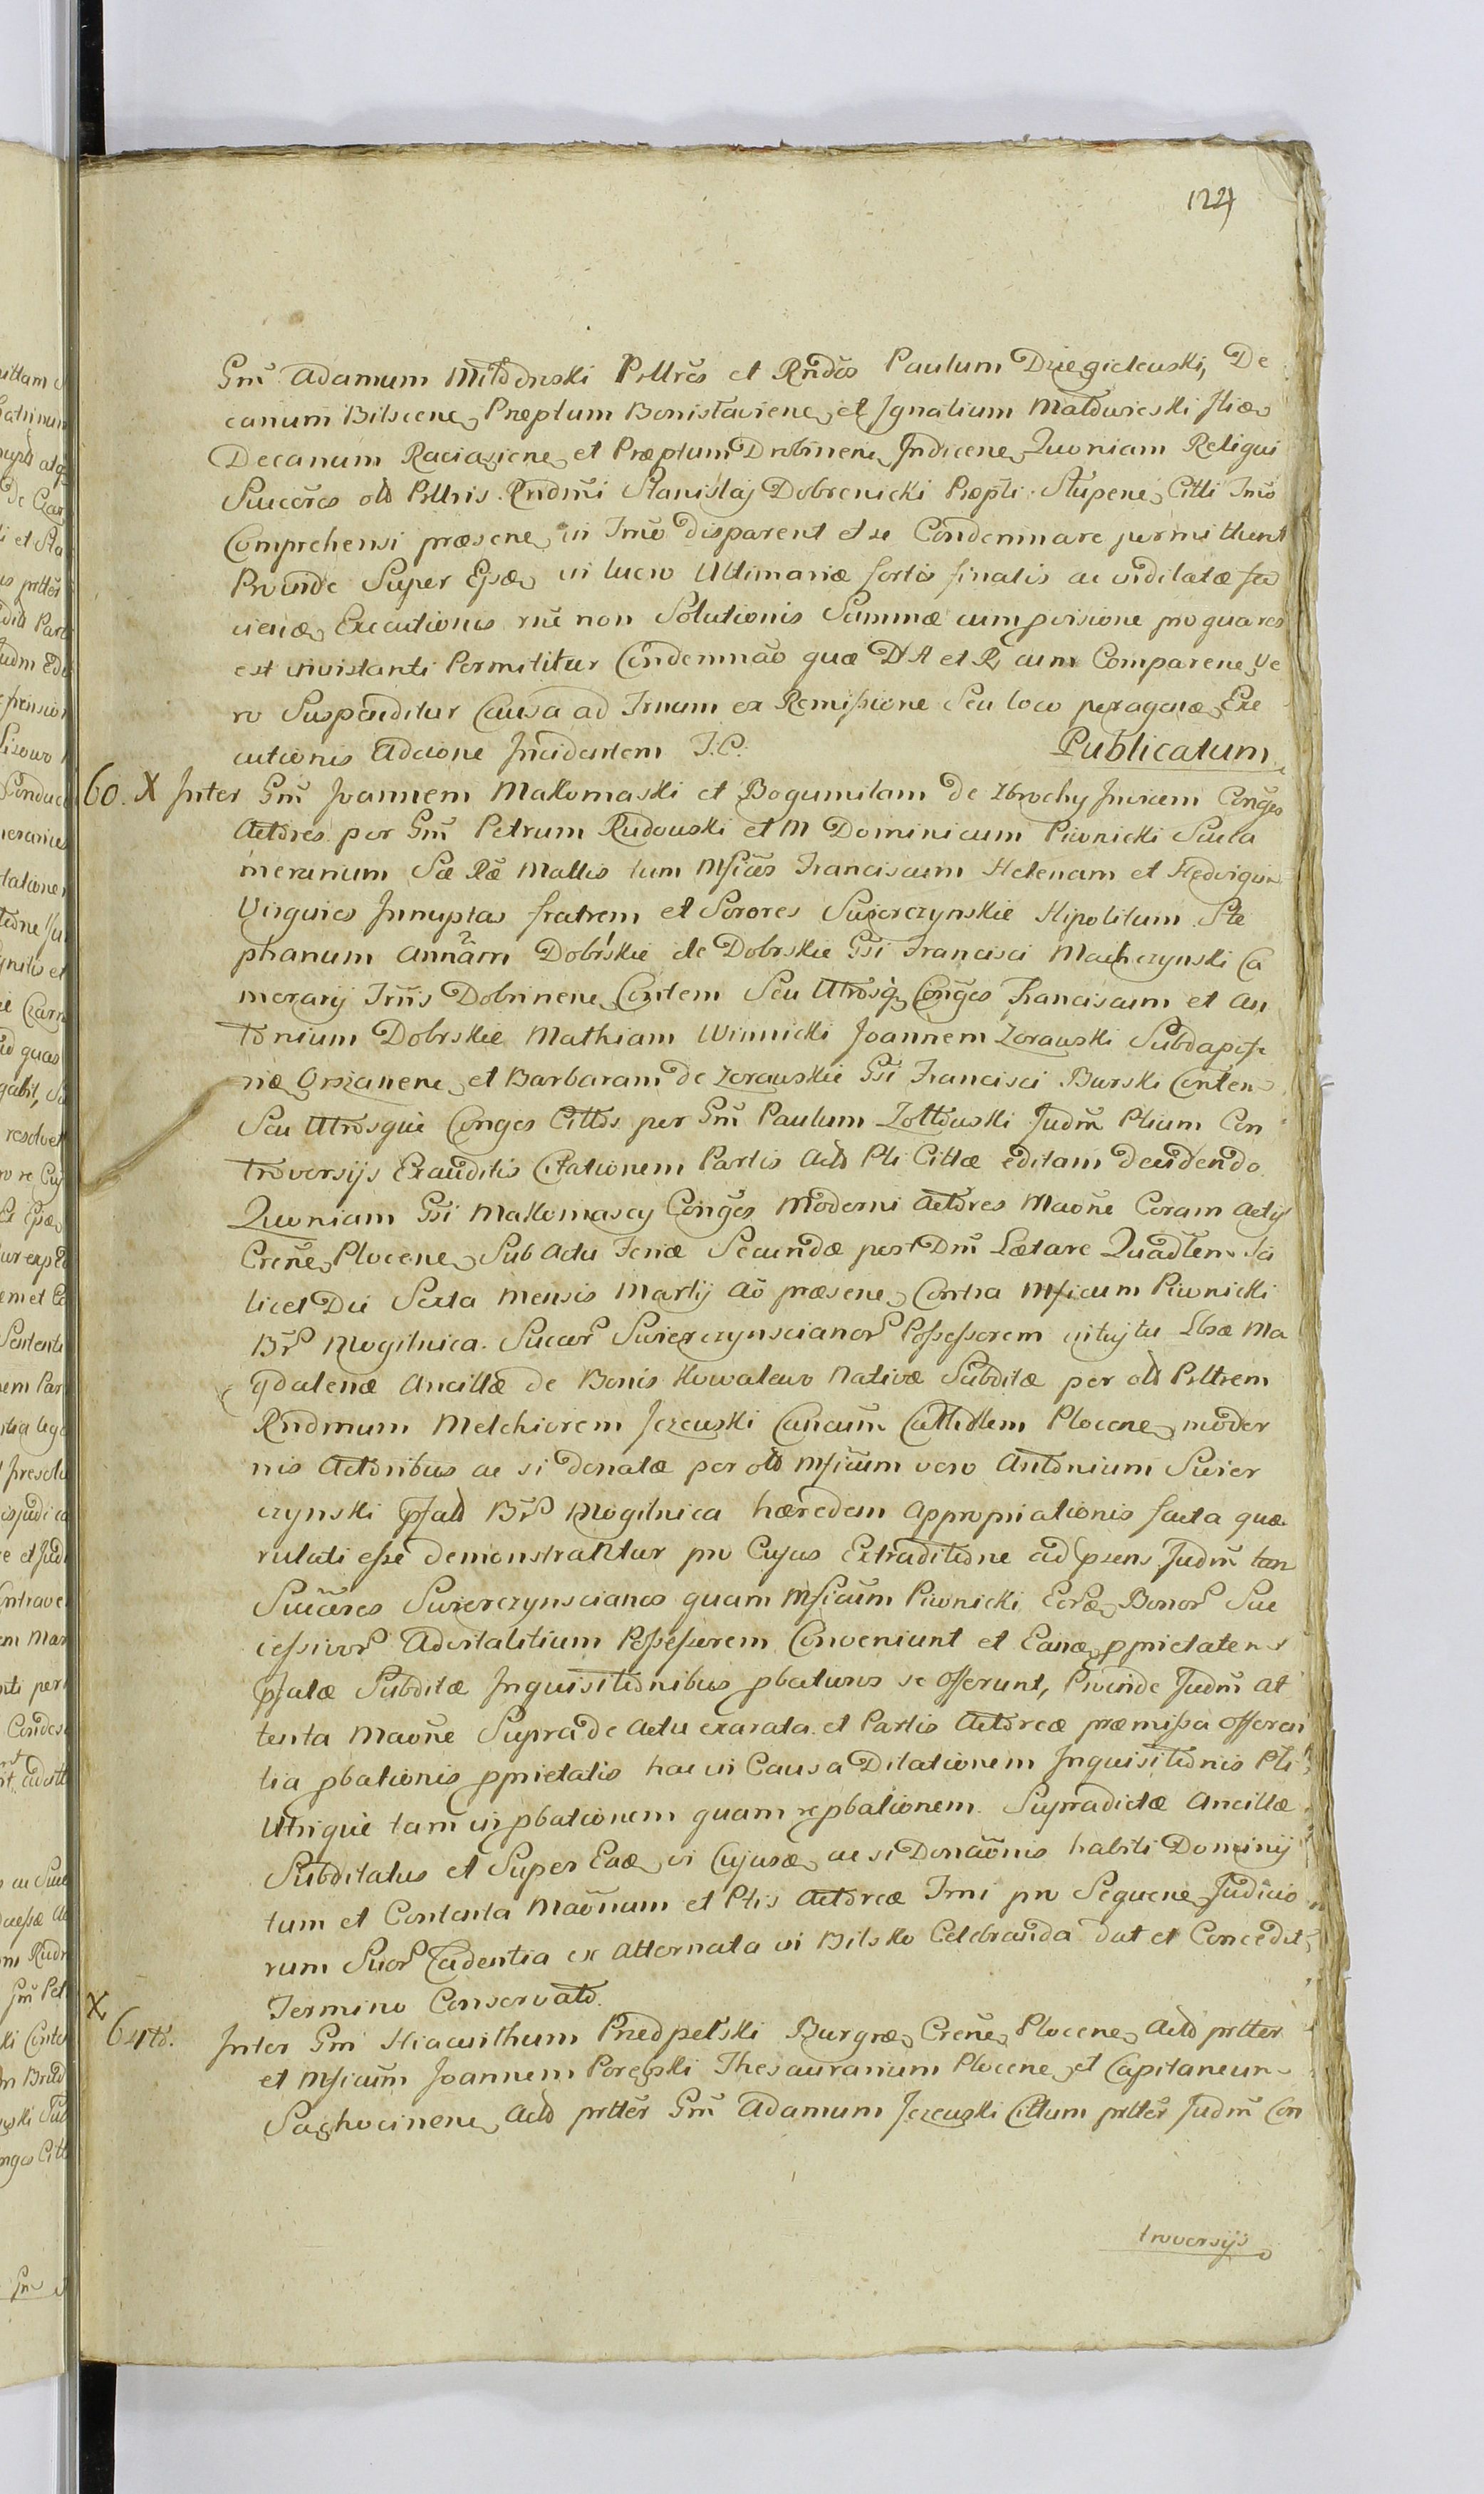 124
Gm̃ Adamum Milewski Pllres et Rndos Paulum Dziegielewski, De
canum Bilscene, Præptum Bonislaviene, et Ignatium Maldwieski
Decanum Raciaziene, et Præptum Drobinene, Indicene, Quoniam Reliqui
Succeres old Pllris Rndmi Stanislaj Dobrenicki Præpti Stupene, Citti Trno
Comprehensi præsene, in Trno disparent et se Condemnare permittunt
Proinde Super Epsæ, in lucro Ultimariæ sortis finalis ac viditatæ fa
ciendæ, Executionis rne non Solutionis Summæ cum provisione pro qua res
est invistanti Permittitur Condemnão quæ DA et R, cum Comparene, Ve
ro Suspenditur Causa ad Trnum ex Remissione Seu loco peragendæ, Exe
cutionis Adcione Incidentem T.C. Publicatum
60. X Inter Gm̃ Joannem Makomaski et Bogumilam de Zbrochy Invicem Conges
Actores per Gm̃ Petrum Rudowski et M Dominicum Piwnicki Succa
merarium Sæ Ræ Mattis tum Mficos Franciscum Helenam et Hedvigim
Virgines Innuptas fratrem et Sorores Swierczynskie Hipolitum Ste
phanum Annam Dobrskie de Dobrskie Gsi Francisci Machczynski Ca
merarij Trris Dobrinene, Contem Seu Utrosq, Conges Franciscum et An
tonium Dobrskie Mathiam Winnicki Joannem Zorawski Subdapife
riæ Orszanene, et Barbaram de Zorawskie Gsi Francisci Burski Contem
Seu Utrosque Conges Cittos per Gm̃ Paulum Zottowski Judm Plium Con
troversijs Exauditis Citationem Partis Acto Pti Cittæ editam decidendo
Quoniam Gsi Makomascy Conges Moderni Actores Maone Coram Actis
Crene, Plocene, Sub Actu Feriæ Secundæ post Dm Lætare Quadlem Sci
licet Die Sexta Mensis Martij Ao præsene, Contra Mficum Piwnicki
Br Mogilnica Succor Swierczynscianor Possessorem intuitu Lbræ Ma
gdalenæ Ancillæ de Bonis Kowalewo Nativæ Subditæ per old Pltrem
Rndmum Melchiorem Jezewski Cancum Cathdlem Plocene, moder
nis Actoribus ac si donatæ per old Mficum vero Antonium Swier
czynski pfatd Br Mogilnica hæredem Appropriationis facta quæ
rulati esse demonstrantur pro Cujus Extraditione ad psens Judm tan
Succeres Swierczynscianos quam Mficum Piwnicki Eorde, Bonor Suc
cessivor Advitalitium Possessorem Conveniunt et Eande, pprietatem
pfatæ Subditæ Inquisitionibus pbaturos se Offerunt, Proinde Judm at
tenta Maone Supra de Actu exarata et Partis Actoreæ præmissa offeren
tia pbationis pprietatis hac in Causa Dilationem Inquisitionis Pti
Utrique tam in pbationem quam repbationem Supradictæ Ancillæ
Subditatus et Super Eaæ, vi Cujusæ, ac si Donaonis habiti Dominij
tum et Contenta Maonum et Ptis Actoreæ Trni pro Sequene, Judicio
rum Suor Cadentia ex Alternata in Bilsko Celebranda dat et Concedit
Termino Conservato.
X
61mo. Inter Gm̃ Hiacinthum Przedpelski Burgræ, Crene, Plocene, Actd prtter
et Mficum Joannem Porebski Thesaurarium Plocene, et Capitaneum
Sachocinene, Actd prtter Gm̃ Adamum Jezewski Cittum prtter Judm Con
troversijs